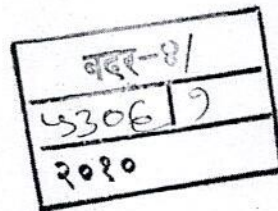 बदर-४/
५३०६ | १
२०१०